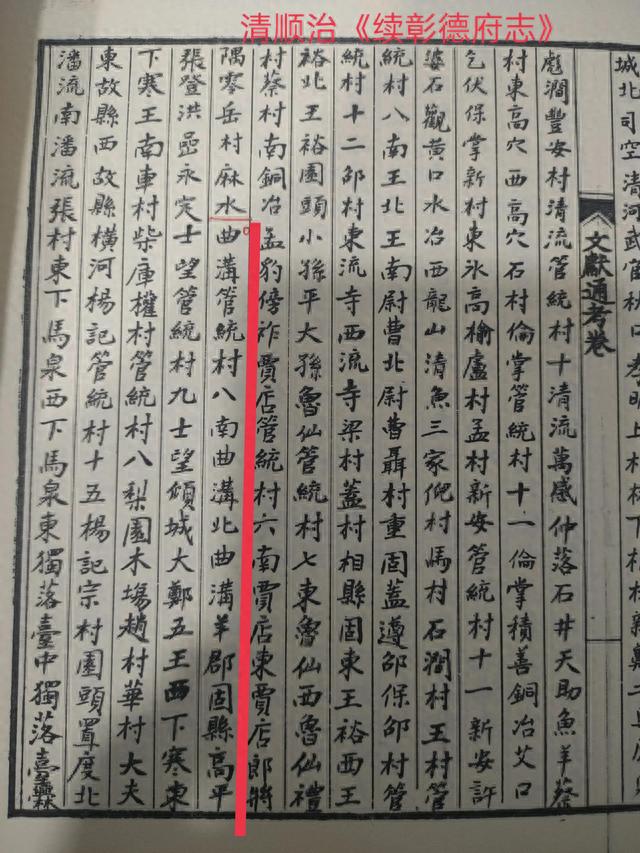 清顺治《续彰德府志》
文獻通考卷
彪澗豐安村清流管統村十清流萬感仲落石井天助魚羊蔡
村東高穴西高穴石村倫掌管統村十一倫掌積善銅冶艾口
乞伏保掌新村東氷高榆盧村孟村新安管統村十一新安許
婆石觀黄口水冶西龍山清魚三家傂村馬村石澗村王村管
統村八南王北王南尉曹北尉曹聶村重固蓋遵邵保邵村管
統村十二邵村東流寺西流寺梁村蓋村相縣固東王裕西王
裕北王裕園頭小孫平大孫魯仙管統村七東魯仙西魯仙禮
村蔡村南銅冶孟豹傍祚賈店管統村六南賈店東賈店郎將
隅零岳村麻水曲溝管統村八南曲溝北曲溝羊郡固縣高平
張登洪嵒永定士望管統村九士望傾城大鄭五王西下寒東
下寒王南車村柴庫權村管統村八梨園木塲趙村華村大夫
東故縣西故縣橫河楊記管統村十五楊記宗村園頭置度北
潘流南潘流張村東下馬泉西下馬泉東獨落臺中獨落臺